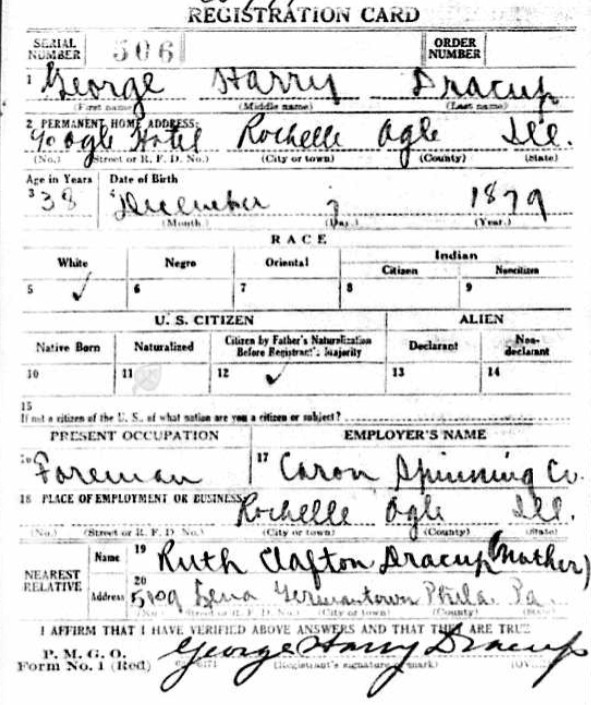 REGISTRATION CARD
SERIAL NUMBER 506 ORDER NUMBER
1 George Harry Dracup
(First name) (Middle name) (Last name)
2 PERMANENT HOME ADDRESS:
℅ Ogle Hotel Rochelle Ogle Ill.
(No.) (Street or R. F. D. No.) (City or town) (County) (State)
Age in Years Date of Birth
3 38 4 December 7 1879
(Month.) (Day.) (Year.)
RACE
White Negro Oriental Indian
Citizen Noncitizen
5 ✓ 6 7 8 9
U. S. CITIZEN ALIEN
Native Born Naturalized Citizen by Father's Naturalization Before Registrant's Majority Declarant Non-declarant
10 11 12 ✓ 13 14
15
If not a citizen of the U. S., of what nation are you a citizen or subject?
PRESENT OCCUPATION EMPLOYER'S NAME
16 Foreman 17 Caron Spinning Co.
18 PLACE OF EMPLOYMENT OR BUSINESS:
Rochelle Ogle Ill.
(No.) (Street or R. F. D. No.) (City or town) (County) (State)
NEAREST RELATIVE Name 19 Ruth Clafton Dracup (Mother)
Address 20 5109 Lena Germantown Phila. Pa.
(No.) (Street or R. F. D. No.) (City or town) (County) (State)
I AFFIRM THAT I HAVE VERIFIED ABOVE ANSWERS AND THAT THEY ARE TRUE
P. M. G. O.
Form No. 1 (Red) George Harry Dracup
(Registrant's signature or mark) (OVER)